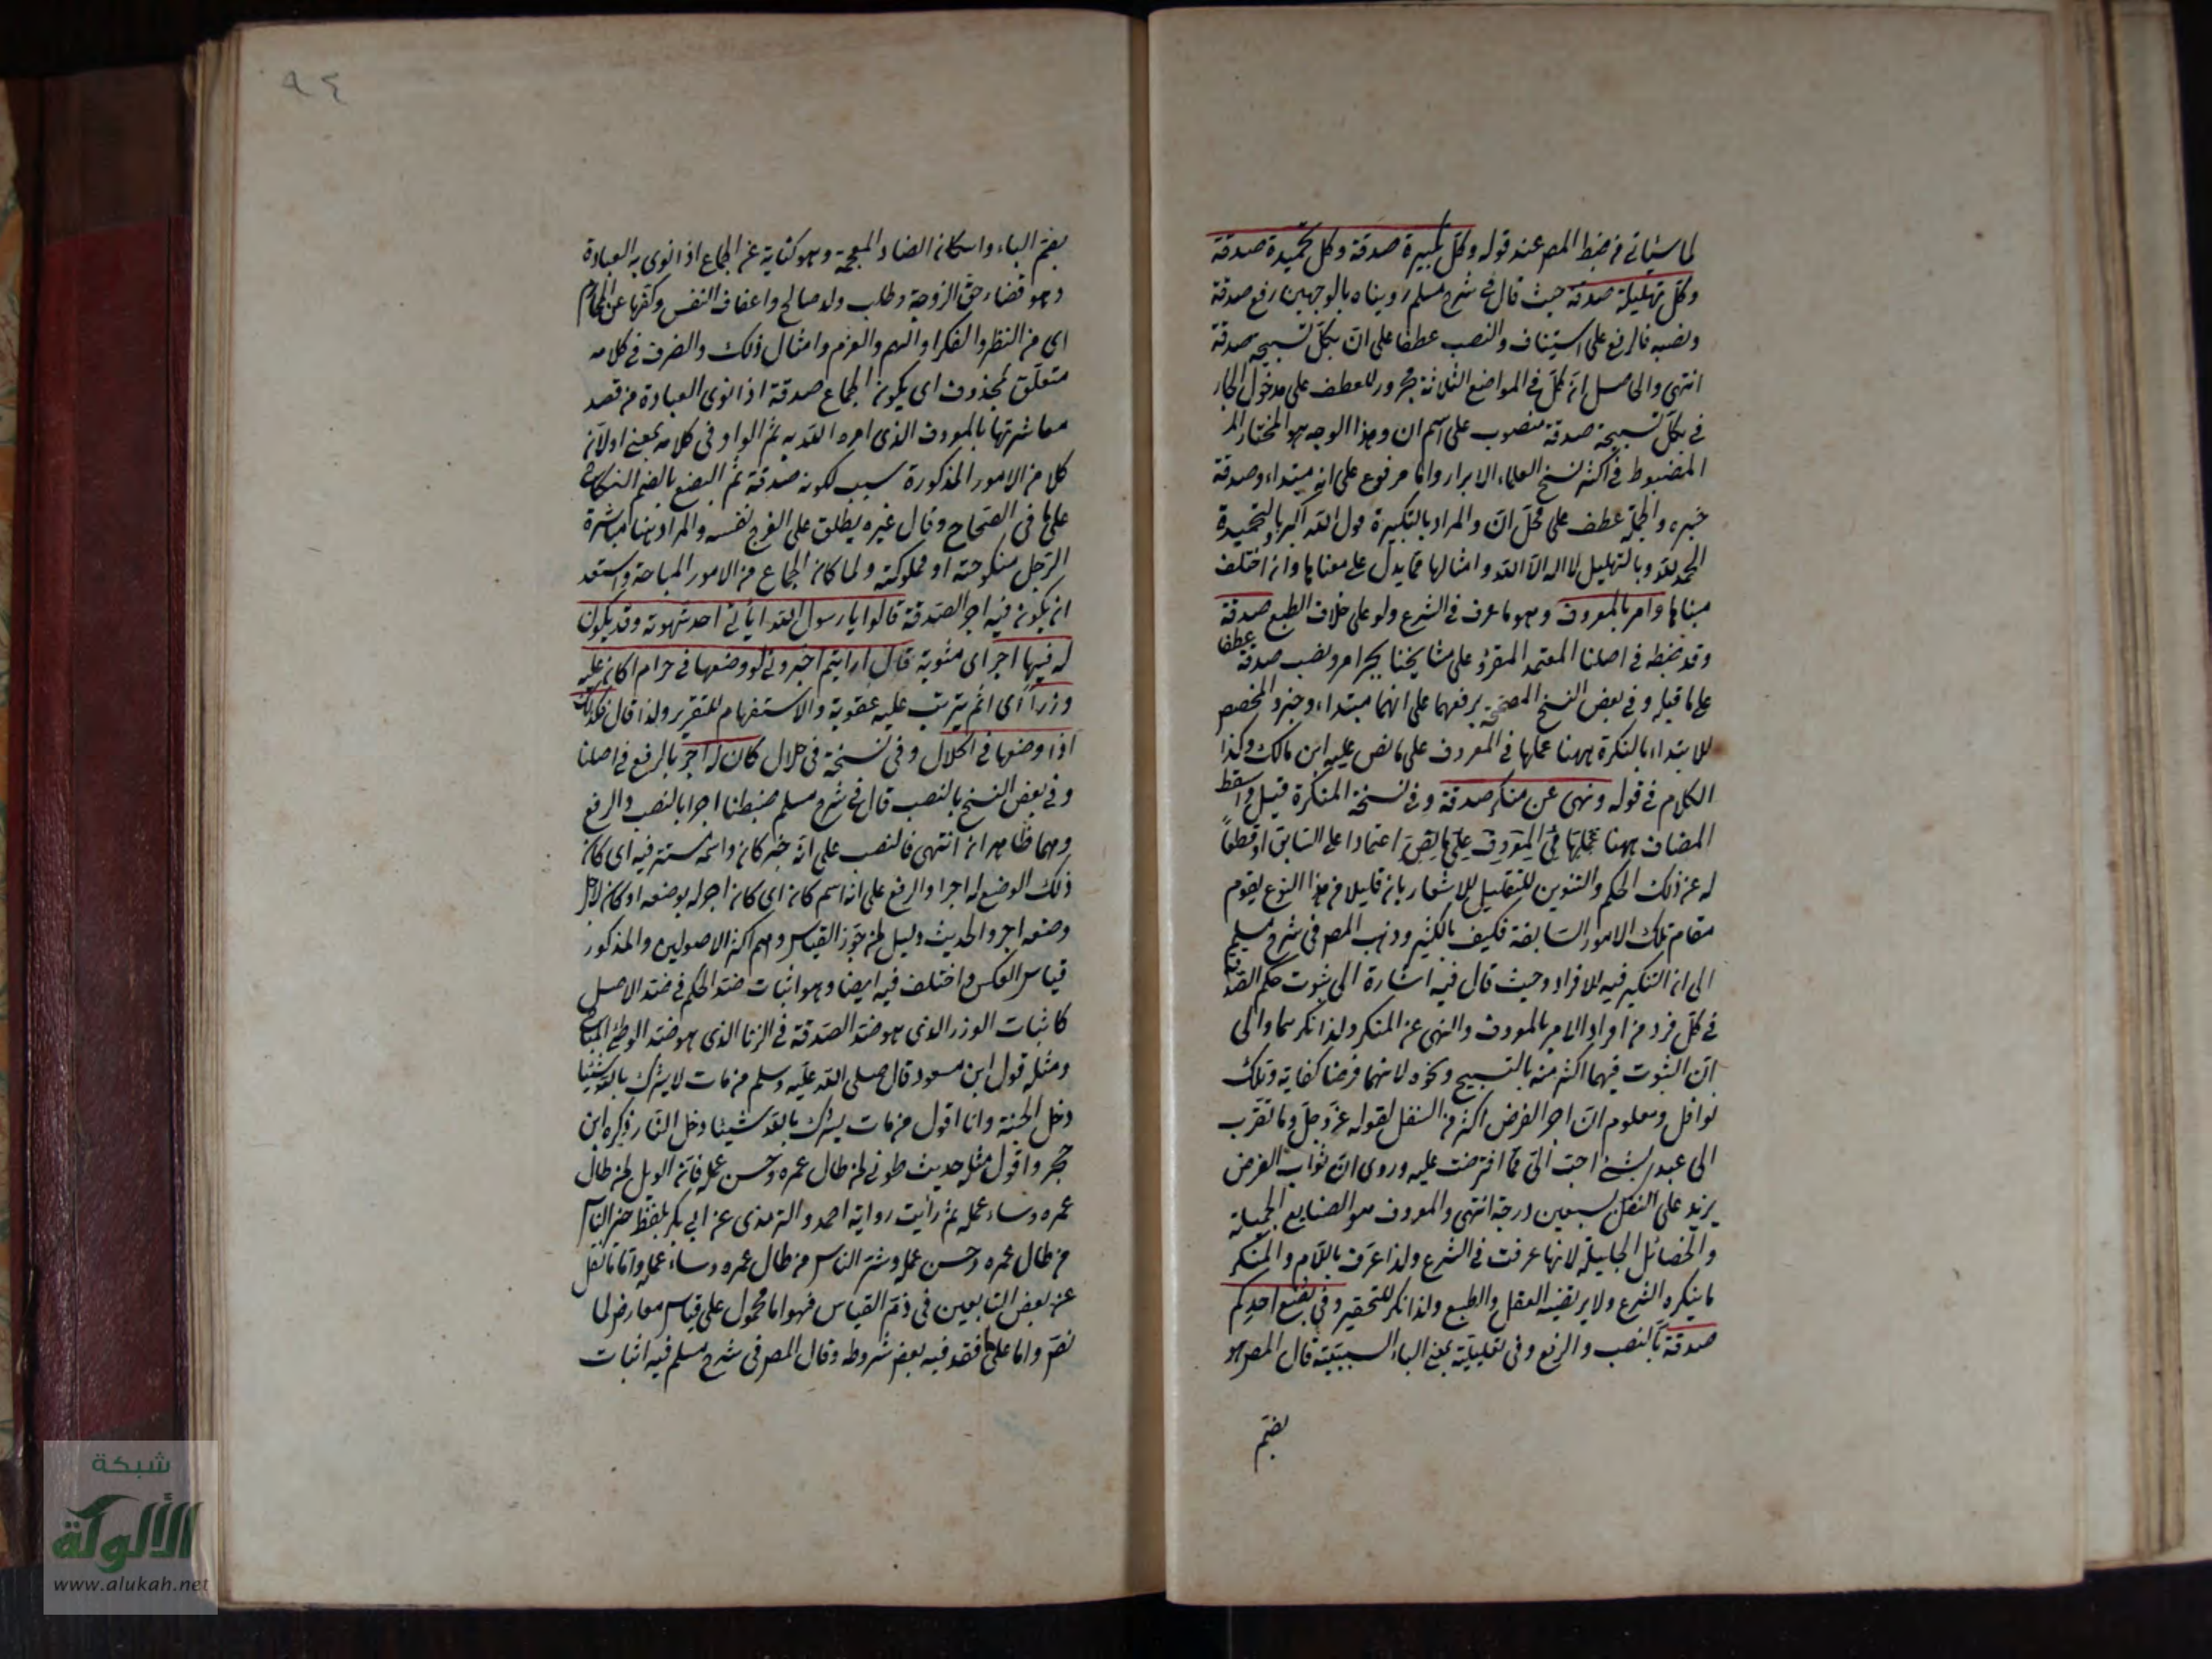 لما سيأتي من ضبط المص عند قوله وكل تكبيرة صدقة وكل تحميدة صدقة
وكل تهليلة صدقة حيث قال في شرح مسلم رويناه بالوجهين رفع صدقة
ونصبه فالرفع على استيناف والنصب عطفا على ان بكل تسبيحة صدقة
انتهى والحاصل ان كل في المواضع الثلاثة مجرور للعطف على مدخول الجار
في بكل تسبيحة صدقة منصوب على اسم ان وهذا الوجه هو المختار
المضبوط في اكثر نسخ العلماء الابرار واما مرفوع على انه مبتداء وصدقة
خبره والجملة عطف على محل ان والمراد بالتكبيرة قول الله اكبر وبالتحميدة
الحمد لله وبالتهليل لا اله الا الله وامثالها مما يدل على معناها وان اختلف
مبناها وامر بالمعروف وهو ما عرف في الشرع ولو على خلاف الطبع صدقة
وقد ضبطه في اصلنا المعتمد المقرؤ على مشايخنا بجر امر ونصب صدقة عطفا
على ما قبله وفي بعض النسخ المصححة برفعهما على انهما مبتداء وخبر والمخصص
للابتداء بالنكرة ههنا عملها في المعروف على ما نص عليه ابن مالك وكذا
الكلام في قوله ونهى عن منكر صدقة وفي نسخة المنكرة قيل واسقط
المضاف ههنا عملها في المعروف على ما نص اعتمادا على السابق او قطعا
له عن ذلك الحكم والتنوين للتقليل للاشعار بان قليلا من هذا النوع يقوم
مقام تلك الامور السابقة فكيف بالكثير وذهب المص في شرح مسلم
الى ان التنكير فيه للافراد وحيث قال فيه اشارة الى ثبوت حكم الصدقة
في كل فرد من افراد الامر بالمعروف والنهي عن المنكر ولذا نكرهما والى
ان الثبوت فيهما اكثر منه بالتسبيح ونحوه لانهما فرضا كفاية وتلك
نوافل ومعلوم ان اجر الفرض اكثر من النفل لقوله عز وجل وما تقرب
الى عبدي بشيء احب الى مما افترضت عليه وروى ان ثواب الفرض
يزيد على النفل بسبعين درجة انتهى والمعروف هو الصنايع الجميلة
والخصائل الجليلة لانها عرفت في الشرع ولذا عرف باللام والمنكر
ما ينكره الشرع ولا يرتضيه العقل والطبع ولذا نكر للتحقير وفي بضع احدكم
صدقة بالنصب والرفع وفي تعليلية بمعنى الباء السببية قال المص هو
بضم
٩٤
بضم الباء واسكان الضاد المعجمة وهو كناية عن الجماع اذا نوى به العبادة
وهو قضاء حق الزوجة وطلب ولد صالح واعفاف النفس وكفها عن المحارم
اي من النظر والفكر او الهم والعزم وامثال ذلك والضرف في كلامه
متعلق بمحذوف اي يكون الجماع صدقة اذا نوى العبادة من قصد
معاشرتها بالمعروف الذي امره الله به ثم الواو في كلامه بمعنى او لان
كلا من الامور المذكورة سبب لكونه صدقة ثم البضع بالضم النكاح
على ما في الصحاح وقال غيره يطلق على الفرج نفسه والمراد هنا مباشرة
الرجل منكوحته او مملوكته ولما كان الجماع من الامور المباحة واستبعد
ان يكون فيه اجر الصدقة قالوا يا رسول الله ايأتي احد شهوته وقد يكون
له فيها اجر اي مثوبة قال ارايتم اخبروني لو وضعها في حرام اكان عليه
وزر اي اثم يترتب عليه عقوبة والاستفهام للتقرير ولذا قال فكذلك
اذا وضعها في الحلال وفي نسخة في حلال كان له اجر بالرفع في اصلنا
وفي بعض النسخ بالنصب قال في شرح مسلم ضبطنا اجرا بالنصب والرفع
وهما ظاهران انتهى فالنصب على انه خبر كان واسمه مستتر فيه اي كان
ذلك الوضع له اجرا والرفع على انه اسم كان اي كان اجر له بوضعه او كان لاجل
وضعه اجر والحديث دليل لمن جوز القياس وهم اكثر الاصوليين والمذكور
قياس العكس واختلف فيه ايضا وهو اثبات ضد الحكم في ضد الاصل
كاثبات الوزر الذي هو ضد الصدقة في الزنا الذي هو ضد الوطئ المباح
ومثله قول ابن مسعود قال صلى الله عليه وسلم من مات لا يشرك بالله شيئا
دخل الجنة وانا اقول من مات يشرك بالله شيئا دخل النار ذكره ابن
حجر واقول مثله حديث طوبى لمن طال عمره وحسن عمله فان الويل لمن طال
عمره وساء عمله ثم رأيت رواية احمد والترمذي عن ابي بكر بلفظ خير الناس
من طال عمره وحسن عمله وشر الناس من طال عمره وساء عمله واما ما نقل
عن بعض التابعين في ذم القياس فهو اما محمول على قياس معارض لما
نص واما على ما فقد فيه بعض شروطه وقال المص في شرح مسلم فيه اثبات
شبكة
الألوكة
www.alukah.net